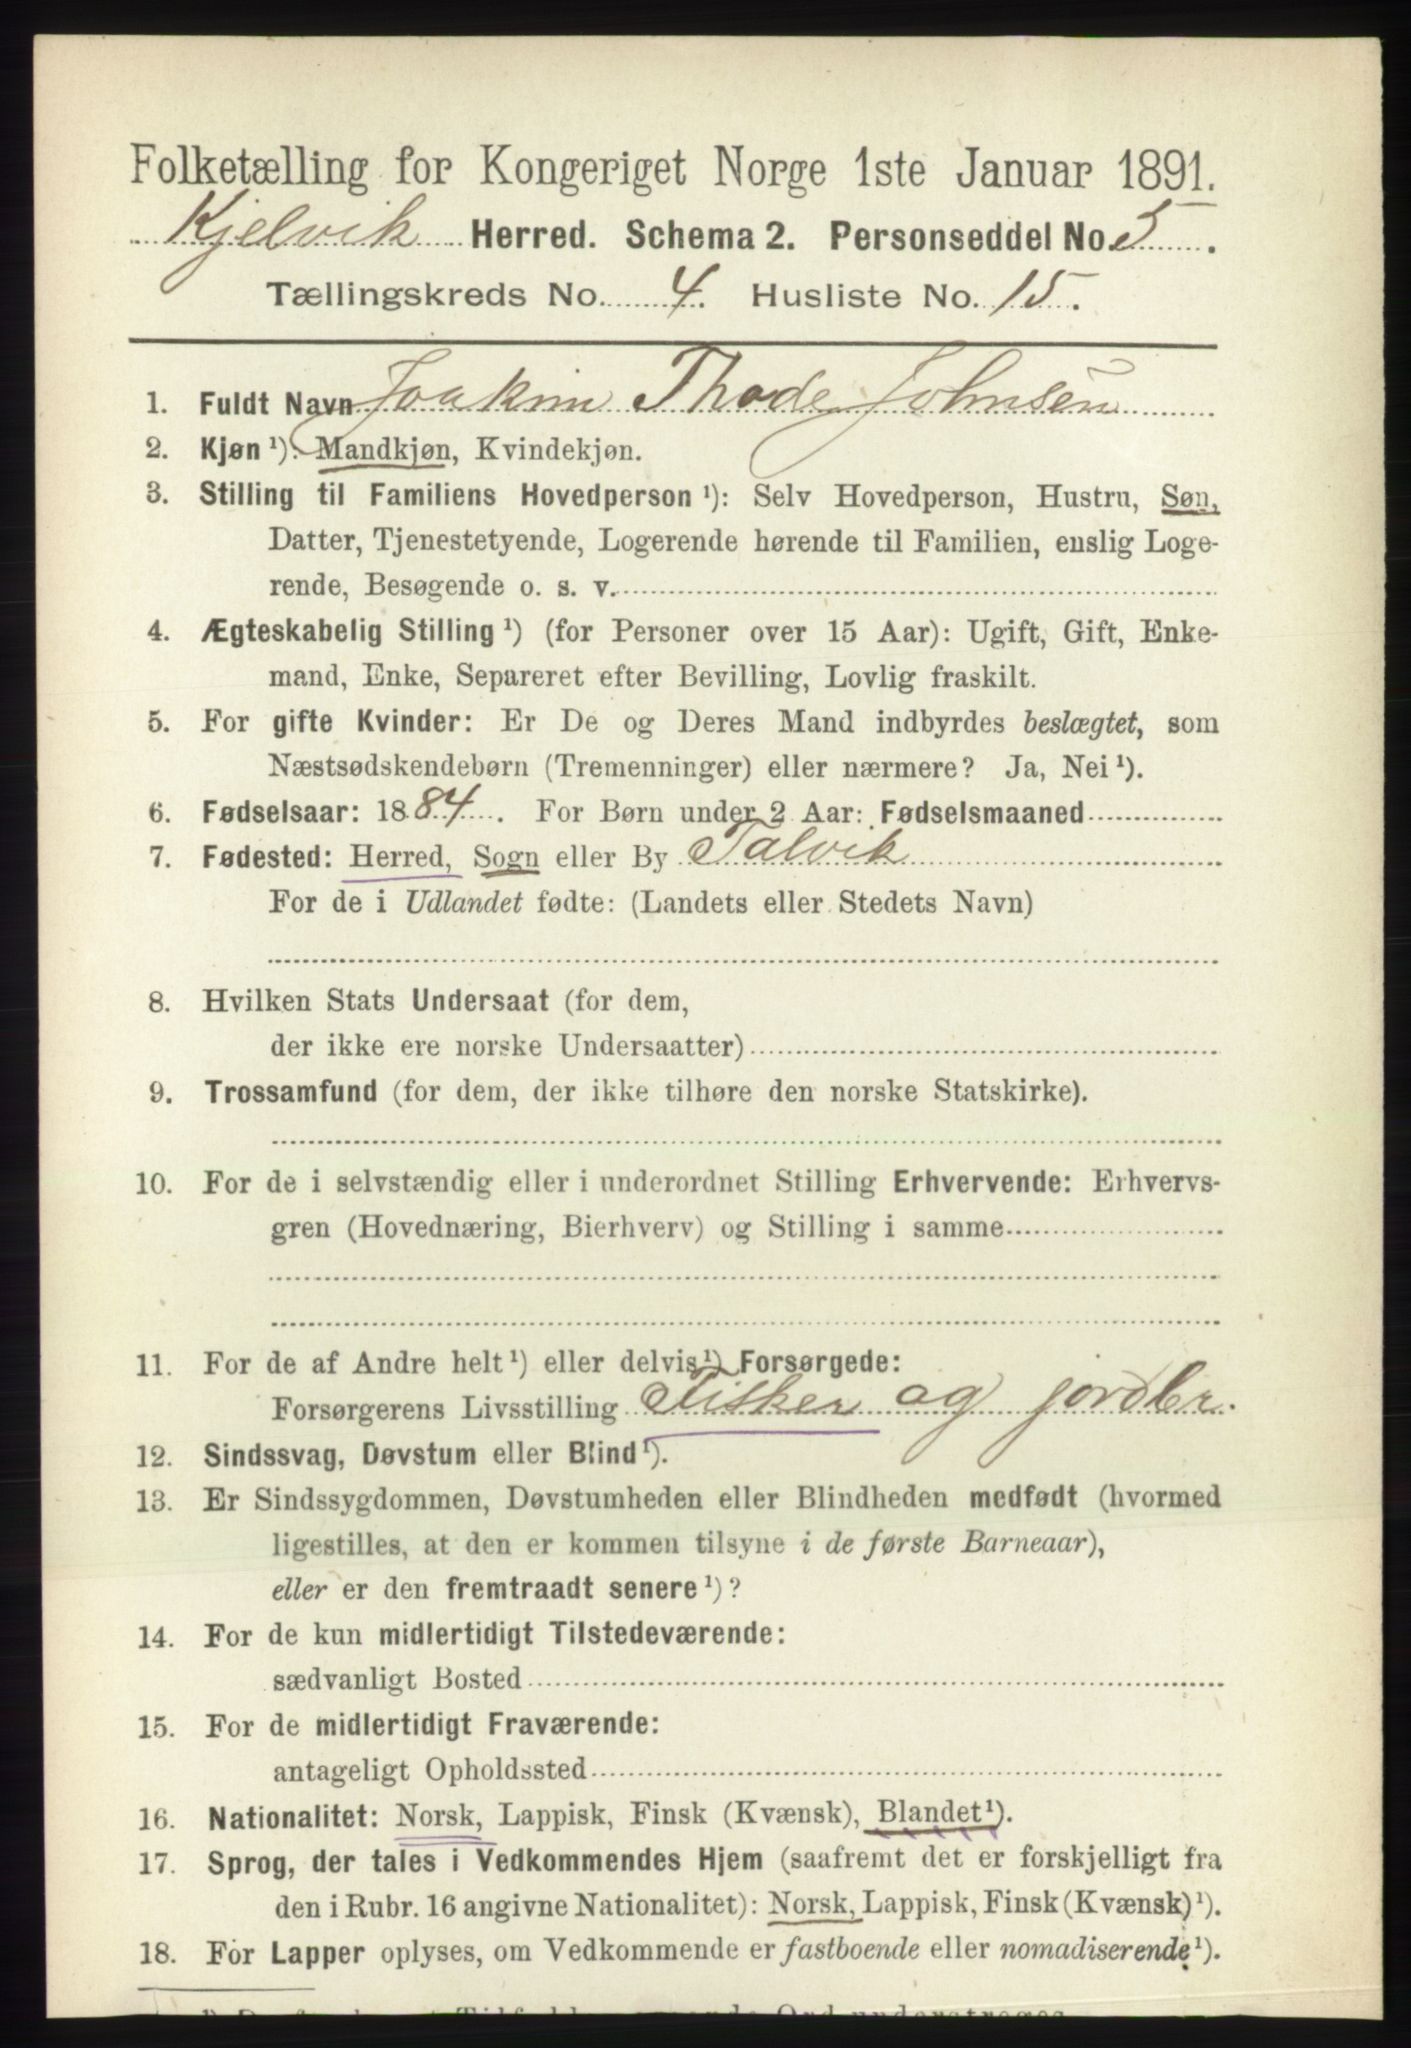 Folketælling for Kongeriget Norge 1ste Januar 1891.
Kjelvik Herred. Schema 2. Personseddel No. 5.
Tællingskreds No. 4. Husliste No. 15.
1. Fuldt Navn Joakim Thode Johnsen
2. Kjøn ¹): Mandkjøn, Kvindekjøn.
3. Stilling til Familiens Hovedperson ¹): Selv Hovedperson, Hustru, Søn,
Datter, Tjenestetyende, Logerende hørende til Familien, enslig Loge-
rende, Besøgende o. s. v.
4. Ægteskabelig Stilling ¹) (for Personer over 15 Aar): Ugift, Gift, Enke-
mand, Enke, Separeret efter Bevilling, Lovlig fraskilt.
5. For gifte Kvinder: Er De og Deres Mand indbyrdes beslægtet, som
Næstsødskendebørn (Tremenninger) eller nærmere? Ja, Nei ¹).
6. Fødselsaar: 1884. For Børn under 2 Aar: Fødselsmaaned
7. Fødested: Herred, Sogn eller By Talvik
For de i Udlandet fødte: (Landets eller Stedets Navn)
8. Hvilken Stats Undersaat (for dem,
der ikke ere norske Undersaatter)
9. Trossamfund (for dem, der ikke tilhøre den norske Statskirke).
10. For de i selvstændig eller i underordnet Stilling Erhvervende: Erhvervs-
gren (Hovednæring, Bierhverv) og Stilling i samme
11. For de af Andre helt ¹) eller delvis ¹) Forsørgede:
Forsørgerens Livsstilling Fisker og jordbr.
12. Sindssvag, Døvstum eller Blind ¹).
13. Er Sindssygdommen, Døvstumheden eller Blindheden medfødt (hvormed
ligestilles, at den er kommen tilsyne i de første Barneaar),
eller er den fremtraadt senere ¹)?
14. For de kun midlertidigt Tilstedeværende:
sædvanligt Bosted
15. For de midlertidigt Fraværende:
antageligt Opholdssted
16. Nationalitet: Norsk, Lappisk, Finsk (Kvænsk), Blandet ¹).
17. Sprog, der tales i Vedkommendes Hjem (saafremt det er forskjelligt fra
den i Rubr. 16 angivne Nationalitet): Norsk, Lappisk, Finsk (Kvænsk) ¹).
18. For Lapper oplyses, om Vedkommende er fastboende eller nomadiserende ¹).